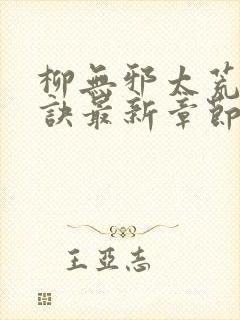 柳無邪太荒
訣最新章節
王亞志